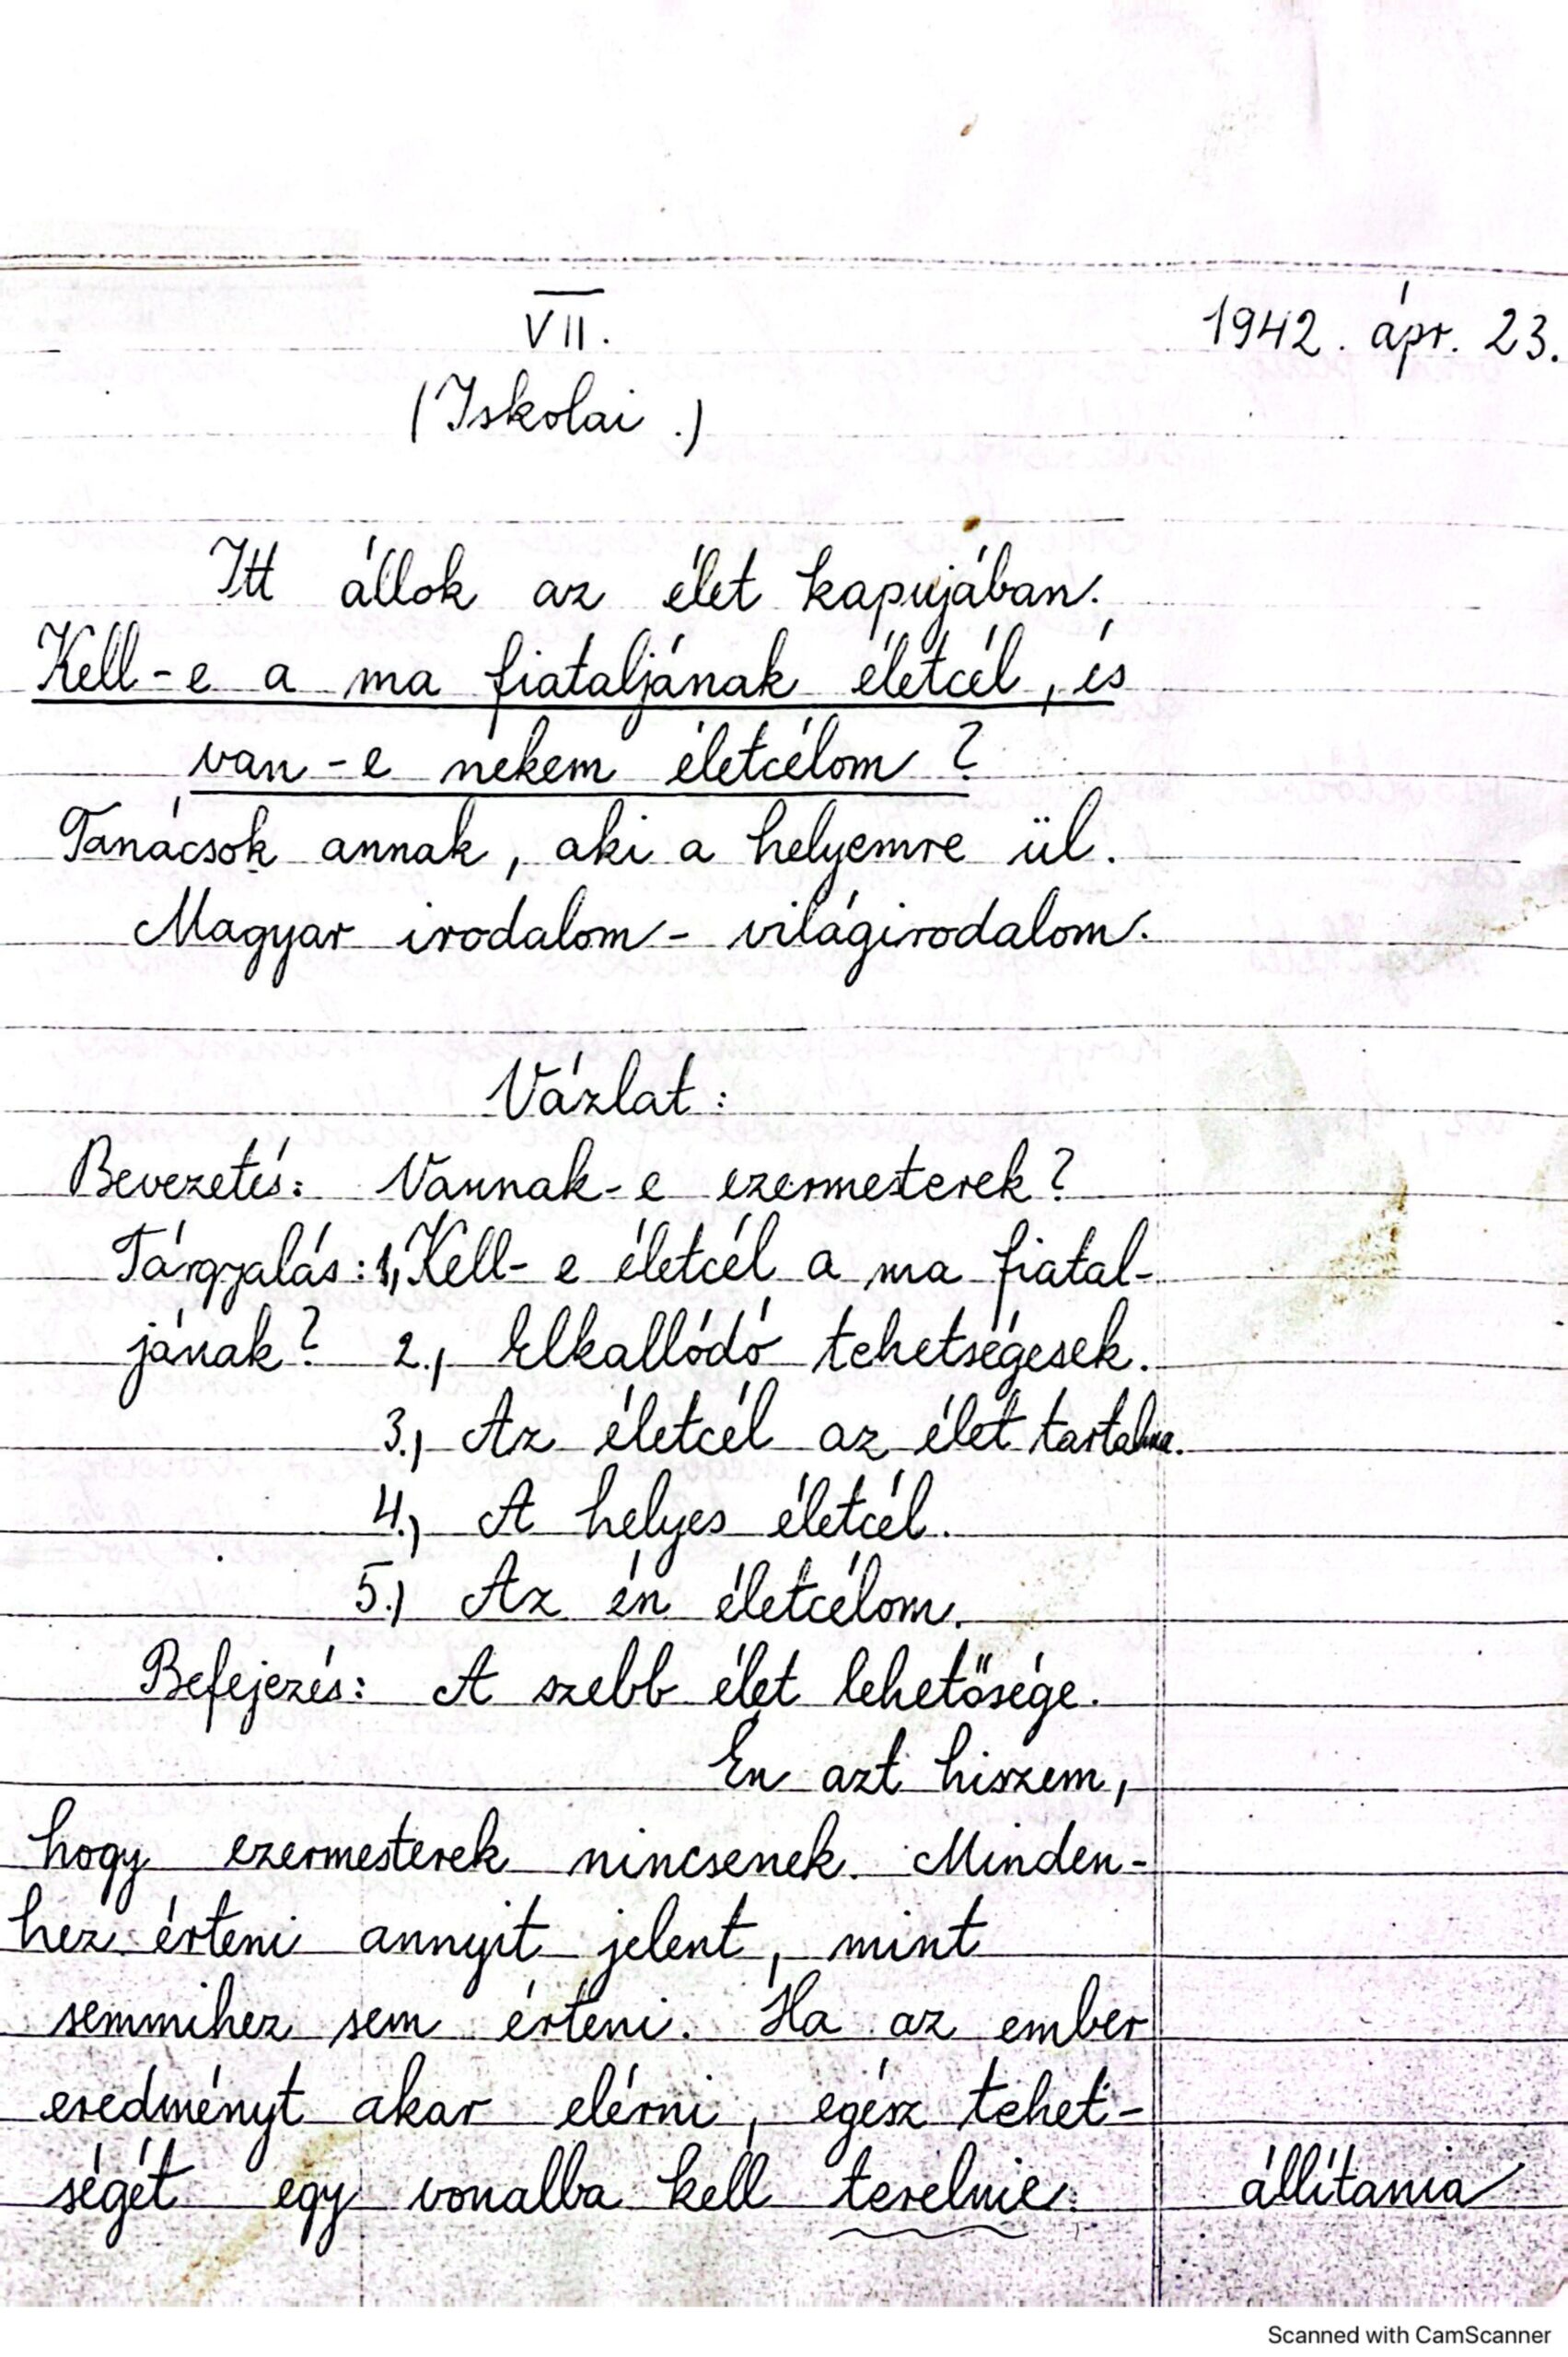 VII. 1942. ápr. 23.
(Iskolai.)
Itt állok az élet kapujában.
Kell-e a ma fiataljának életcél, és
van-e nekem életcélom?
Tanácsok annak, aki a helyemre ül.
Magyar irodalom - világirodalom.
Vázlat:
Bevezetés: Vannak-e ezermesterek?
Tárgyalás: 1, Kell-e életcél a ma fiatal-
jának? 2., Elkallódó tehetségesek.
3., Az életcél az élet tartalma.
4., A helyes életcél.
5., Az én életcélom.
Befejezés: A szebb élet lehetősége.
Én azt hiszem,
hogy ezermesterek nincsenek. Minden-
hez érteni annyit jelent, mint
semmihez sem érteni. Ha az ember
eredményt akar elérni, egész tehet-
ségét egy vonalba kell terelnie. állítania
Scanned with CamScanner